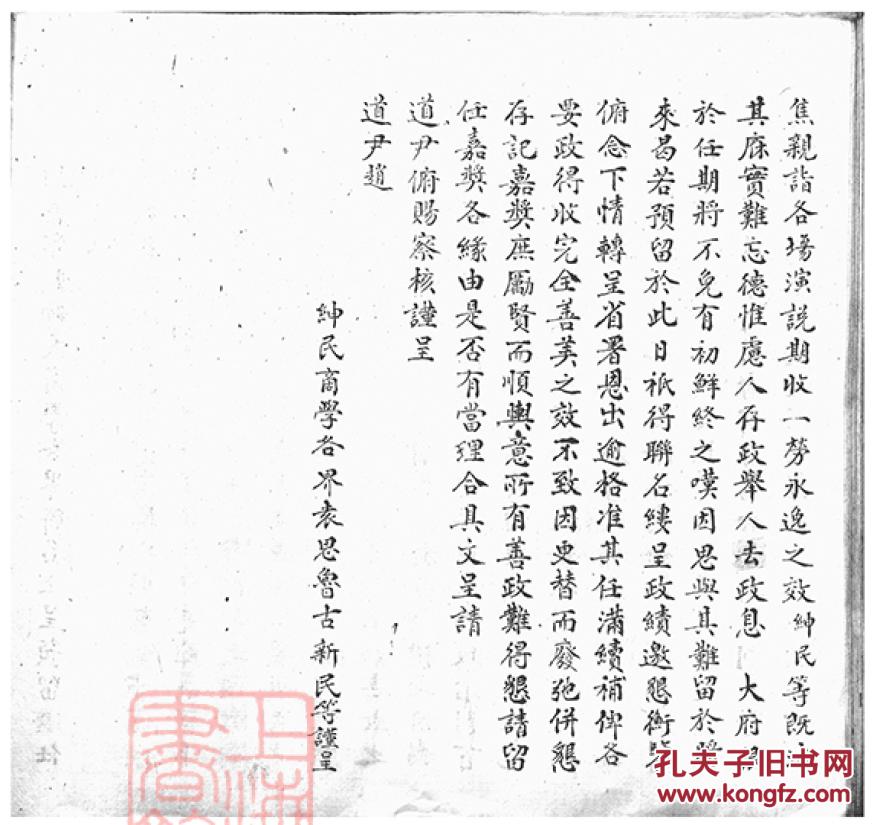 焦親詣各場演說期收一勞永逸之效紳民等既
其庥實難忘德惟慮人存政舉人去政息 大府
於任期將不免有初鮮終之嘆因思與其難留於將
來曷若預留於此日祇得聯名縷呈政績邀懇衡鑒
俯念下情轉呈省署恩出逾格准其任滿續補俾各
要政得收完全善美之效不致因更替而廢弛併懇
存記嘉奬庶勵賢而順輿意所有善政難得懇請留
任嘉奬各緣由是否有當理合具文呈請
道尹俯賜察核謹呈
道尹趙
紳民商學各界袁思魯古新民等謹呈
上海
書
孔夫子旧书网
www.kongfz.com